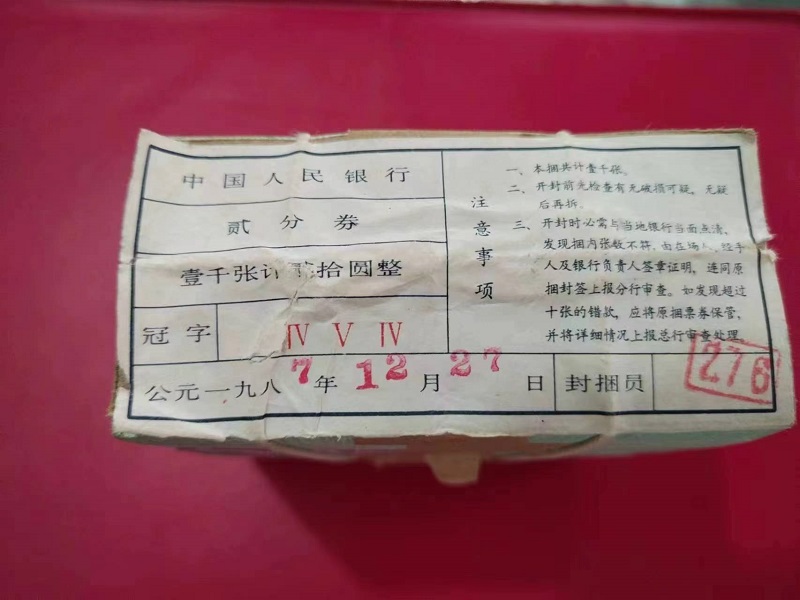 中国人民银行
贰分券
壹千张计 拾圆整
冠字 Ⅳ Ⅴ Ⅳ
公元一九八7年12月27日 封捆员 276
注意事项
一、本捆共计壹千张。
二、开封前先检查有无破损可疑，无疑
后再拆。
三、开封时必需与当地银行当面点清，
发现捆内张数不符，由在场人、经手
人及银行负责人签章证明，连同原
捆封签上报分行审查。如发现超过
十张的错款，应将原捆票券保管，
并将详细情况上报总行审查处理。